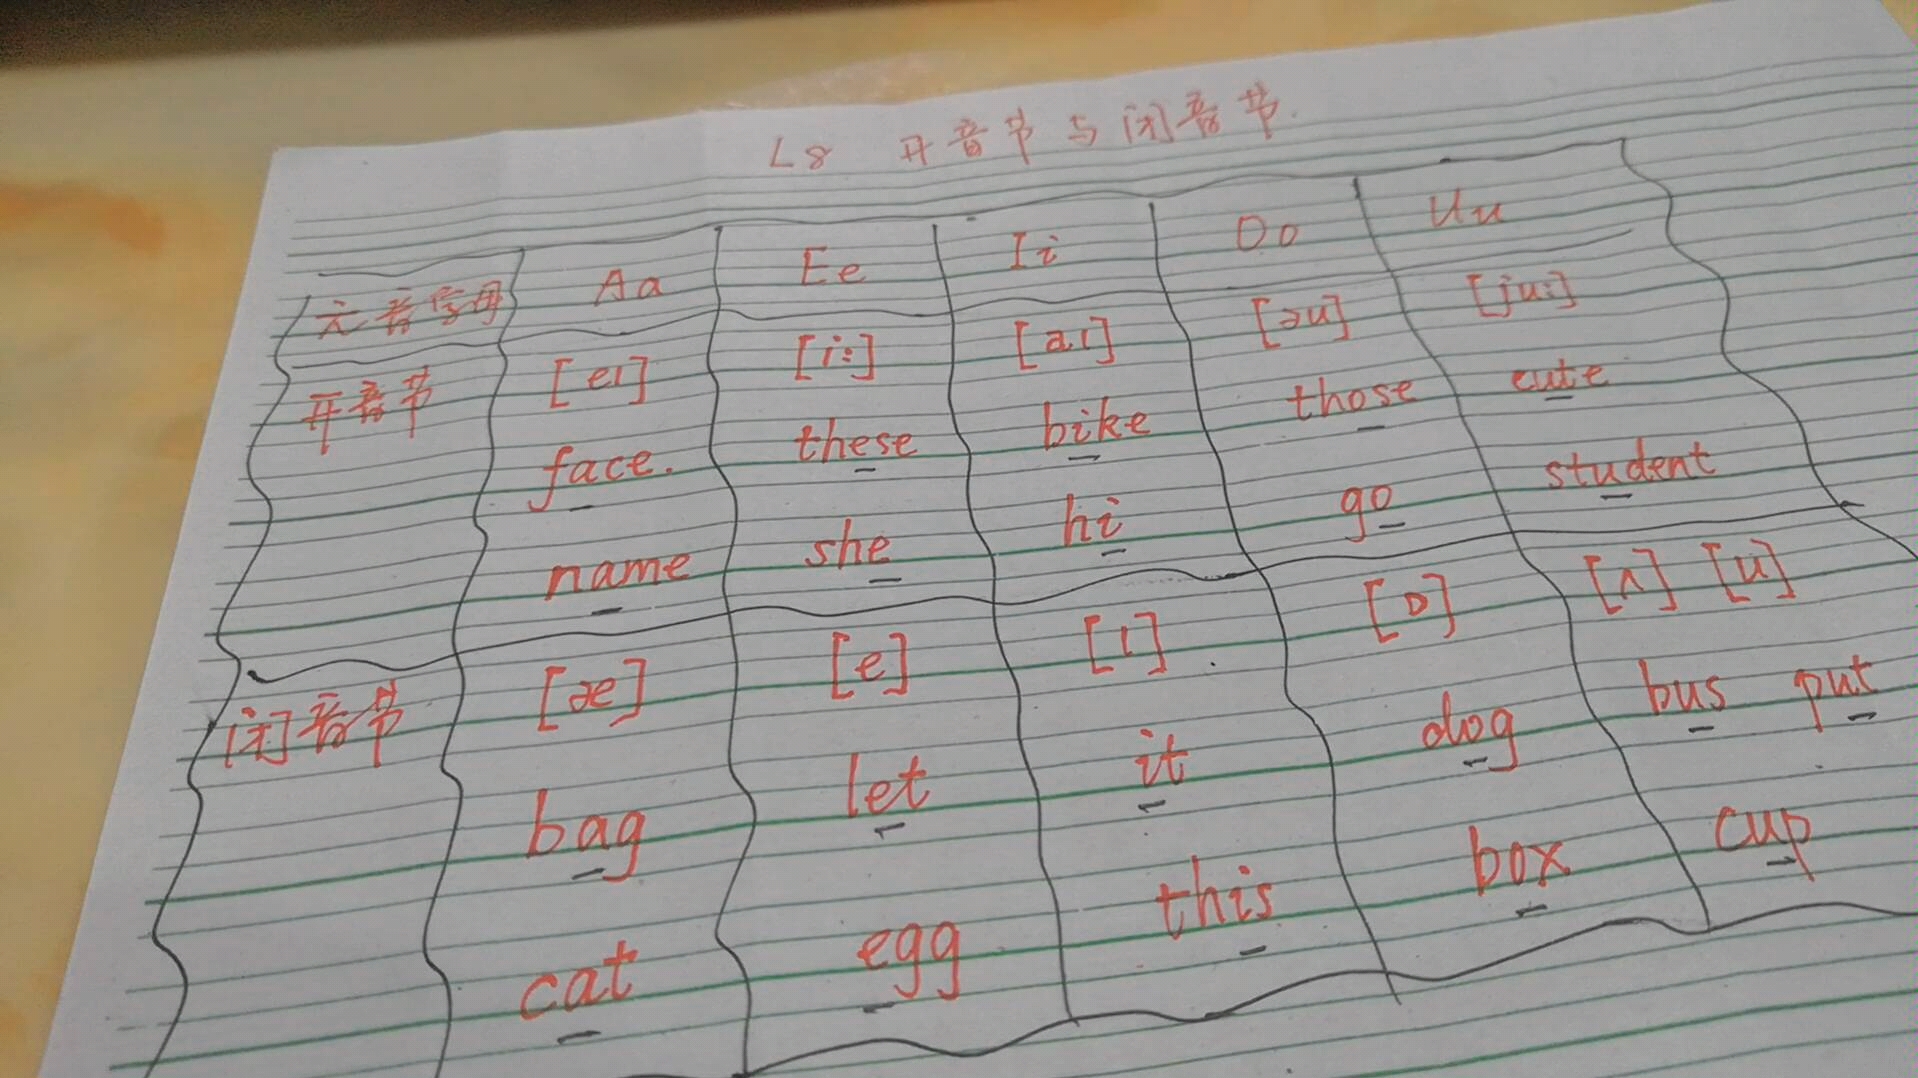 L8 开音节与闭音节.
元音字母 Aa Ee Ii Oo Uu
开音节 [eɪ] [i:] [aɪ] [əu] [ju:]
face. these bike those cute
name she hi go student
闭音节 [æ] [e] [ɪ] [ɒ] [ʌ] [u]
bag let it dog bus put
cat egg this box cup